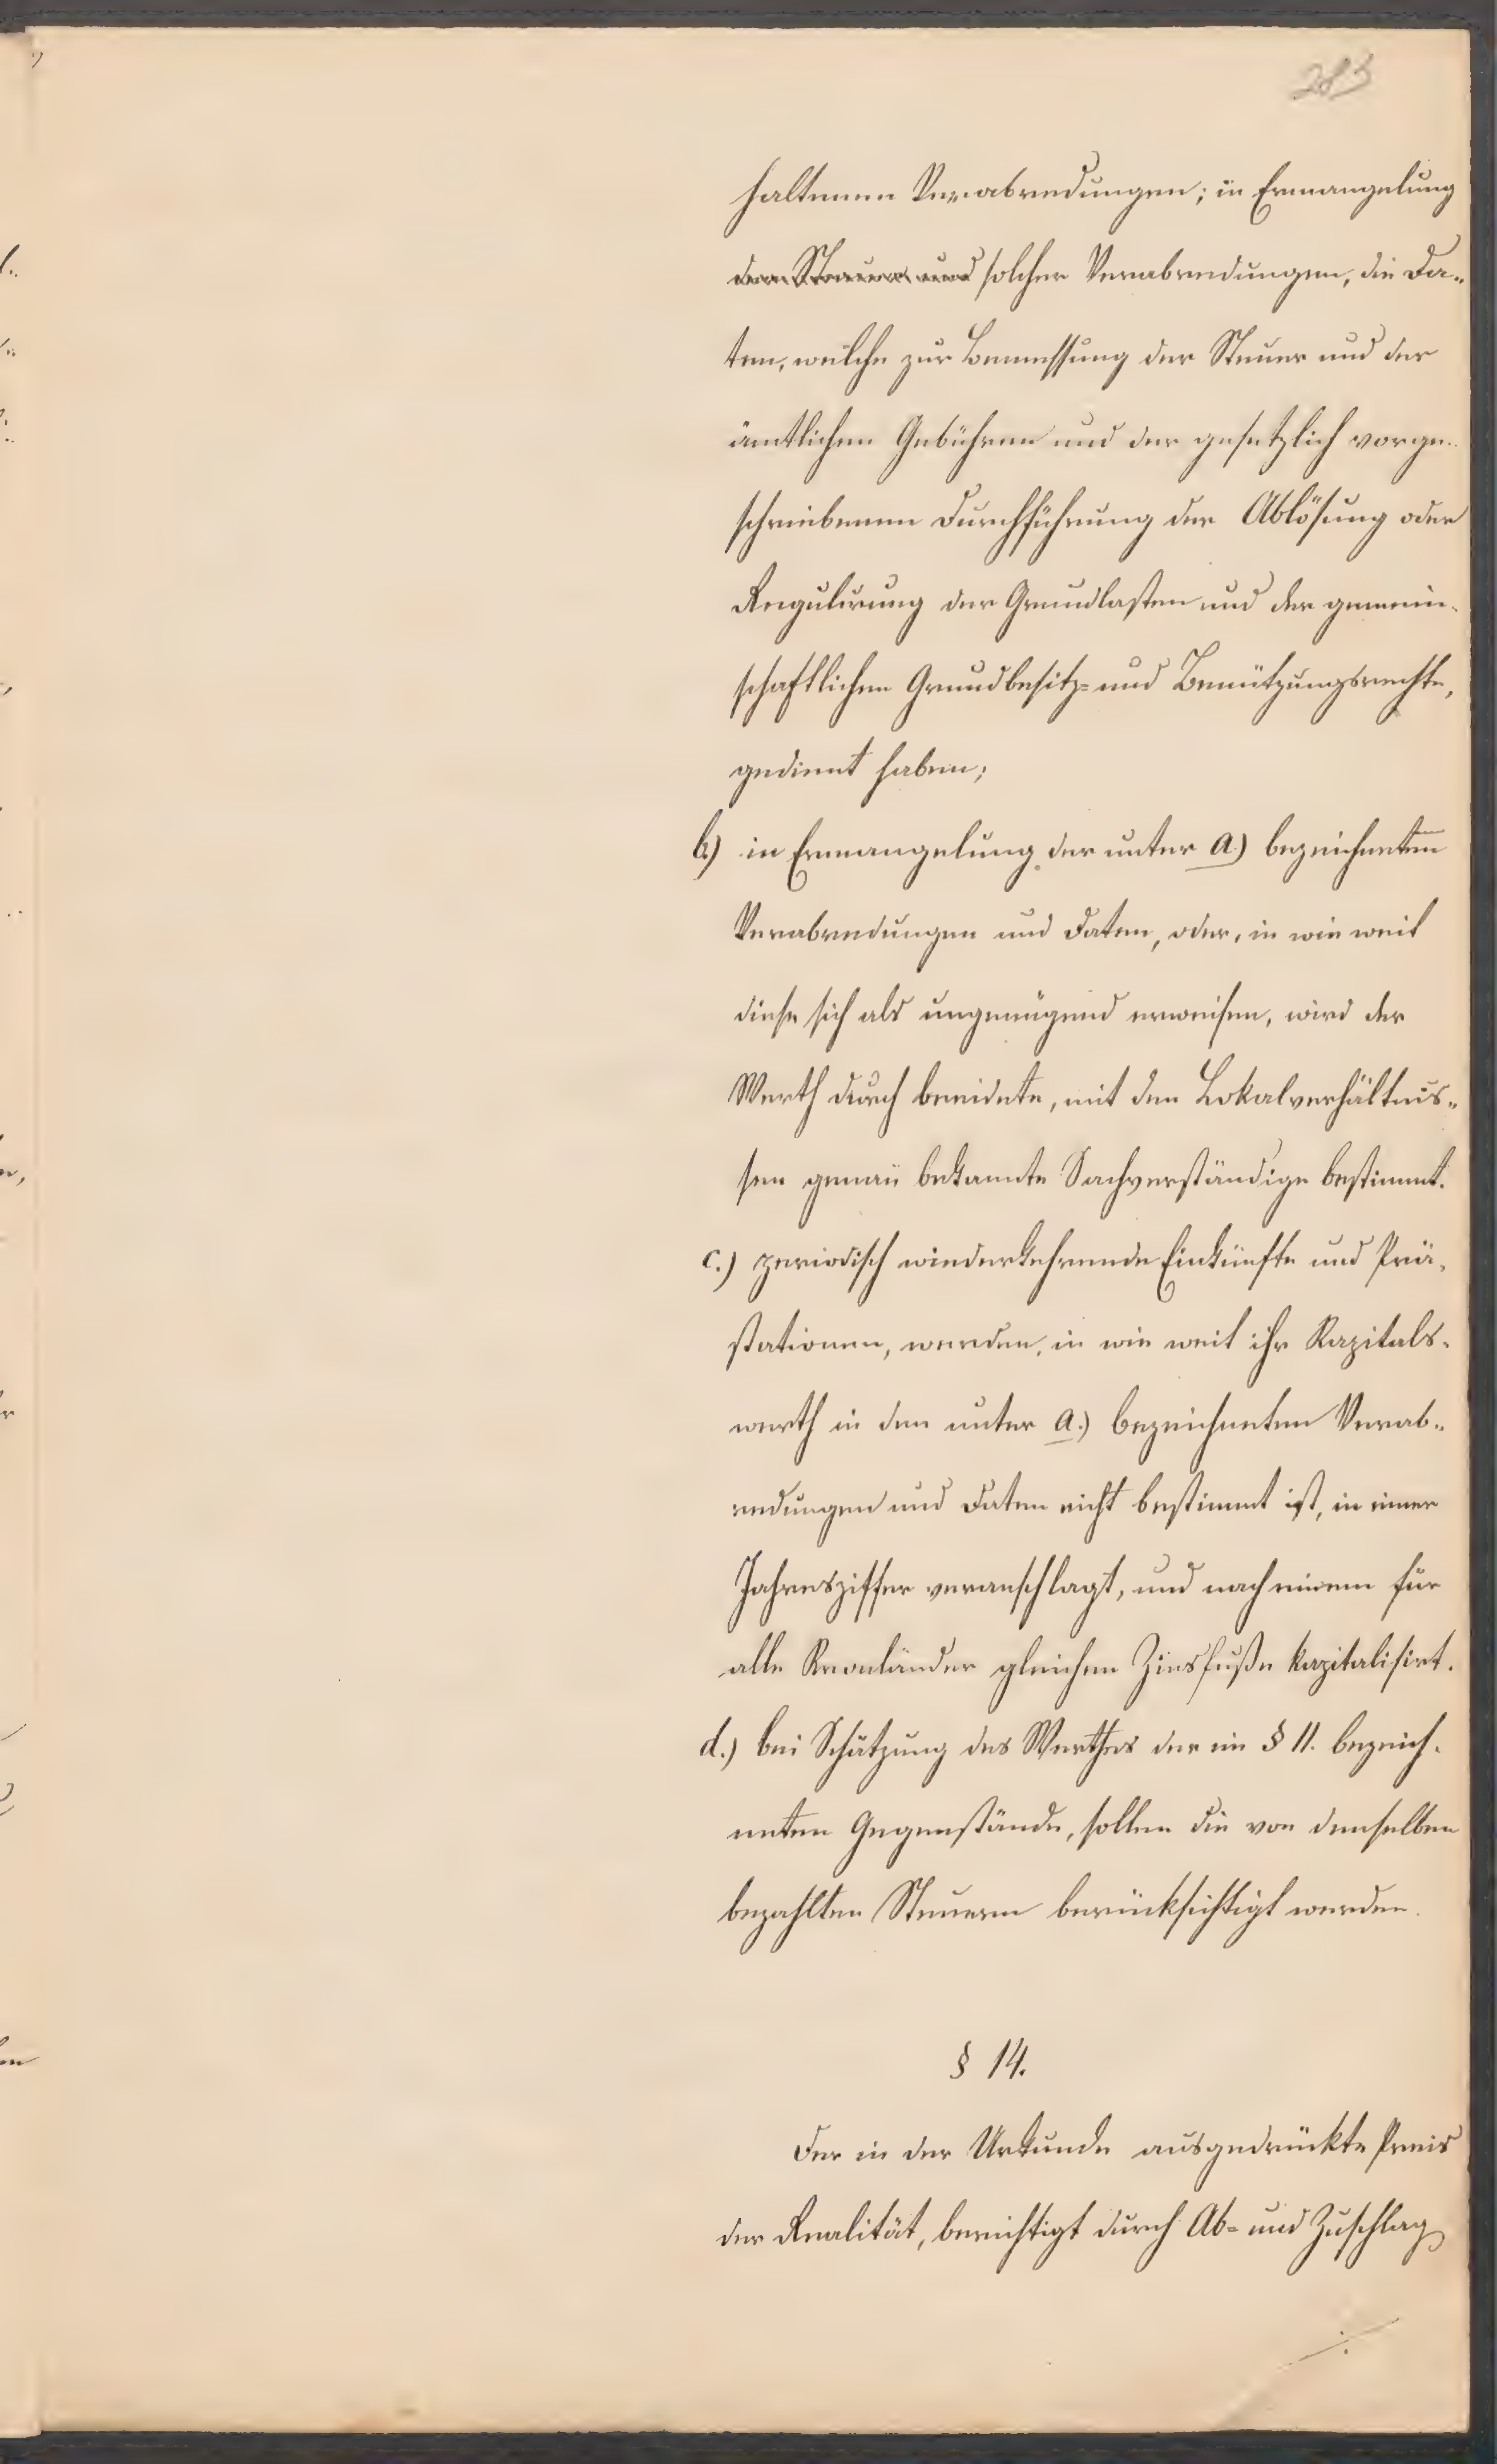 283
haltenen Verabredungen; in Ermangelung
der Steuer und solcher Verabredungen, die Da-
ten, welche zur Bemessung der Steuer und der
ämtlichen Gebühren und der gesetzlich vorge-
schriebenen Durchführung der Ablösung oder
Regulirung der Grundlasten und der gemein-
schaftlichen Grundbesitz- und Benützungsrechte,
gedient haben;
b.) in Ermangelung der unter a.) bezeichneten
Verabredungen und Daten, oder, in wie weit
diese sich als ungenügend erweisen, wird der
Werth durch beeidete, mit den Lokalverhältnis-
sen genau bekannte Sachverständige bestimmt.
c.) periodisch wiederkehrende Einkünfte und Prä-
stationen, werden, in wie weit ihr Kapitals-
werth in den unter a.) bezeichneten Verab-
redungen und Daten nicht bestimmt ist, in einer
Jahresziffer veranschlagt, und nach einem für
alle Kronländer gleichen Zinsfuße kapitalisirt.
d.) bei Schätzung des Werthes der im § 11. bezeich-
neten Gegenstände, sollen die von denselben
bezahlten Steuern berücksichtigt werden.
§ 14.
Der in der Urkunde ausgedrückte Preis
der Realität, berichtigt durch Ab- und Zuschlag